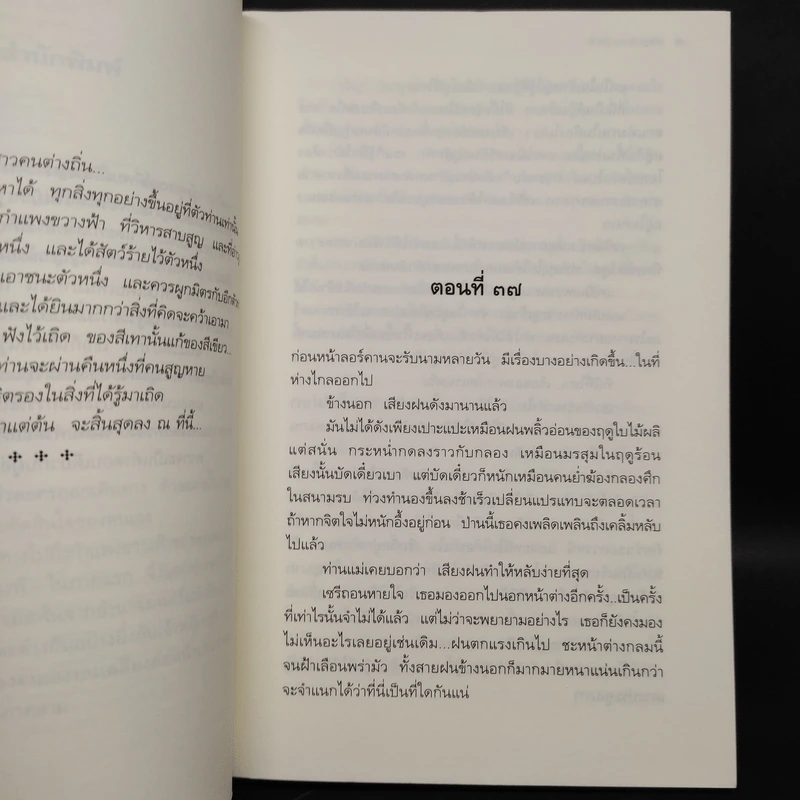 าวคนต่างถิ่น...
หาได้ ทุกสิ่งทุกอย่างขึ้นอยู่ที่ตัวท่านเท่านั้น
กำแพงขวางฟ้า ที่วิหารสาบสูญ และที่
หนึ่ง และได้สัตว์ร้ายไว้ตัวหนึ่ง
เอาชนะตัวหนึ่ง และควรผูกมิตรกับอีกตัว
และได้ยินมากกว่าสิ่งที่คิดจะคว้าเอามา
ฟังไว้เถิด ของสีเทานั้นแก้ของสีเขียว..
ท่านจะผ่านคืนหนึ่งที่คนสูญหาย
ตรองในสิ่งที่ได้รู้มาเถิด
าแต่ต้น จะสิ้นสุดลง ณ ที่นี้...
ตอนที่ ๓๗
ก่อนหน้าลอร์คานจะรับนามหลายวัน มีเรื่องบางอย่างเกิดขึ้น...ในที่
ห่างไกลออกไป
ข้างนอก เสียงฝนดังมานานแล้ว
มันไม่ได้ดังเพียงเปาะแปะเหมือนฝนพลิ้วอ่อนของฤดูใบไม้ผลิ
แต่สนั่น กระหน่ำกดลงราวกับกลอง เหมือนมรสุมในฤดูร้อน
เสียงนั้นบัดเดี๋ยวเบา แต่บัดเดี๋ยวก็หนักเหมือนคนย่ำฆ้องกลองศึก
ในสนามรบ ท่วงทำนองขึ้นลงช้าเร็วเปลี่ยนแปรแทบจะตลอดเวลา
ถ้าหากจิตใจไม่หนักอึ้งอยู่ก่อน ป่านนี้เธอคงเพลิดเพลินถึงเคลิ้มหลับ
ไปแล้ว
ท่านแม่เคยบอกว่า เสียงฝนทำให้หลับง่ายที่สุด
เซรีถอนหายใจ เธอมองออกไปนอกหน้าต่างอีกครั้ง..เป็นครั้ง
ที่เท่าไรนั้นจำไม่ได้แล้ว แต่ไม่ว่าจะพยายามอย่างไร เธอก็ยังคงมอง
ไม่เห็นอะไรเลยอยู่เช่นเดิม...ฝนตกแรงเกินไป ชะหน้าต่างกลมนี้
จนฝ้าเลือนพร่ามัว ทั้งสายฝนข้างนอกก็มากมายหนาแน่นเกินกว่า
จะจำแนกได้ว่าที่นี่เป็นที่ใดกันแน่